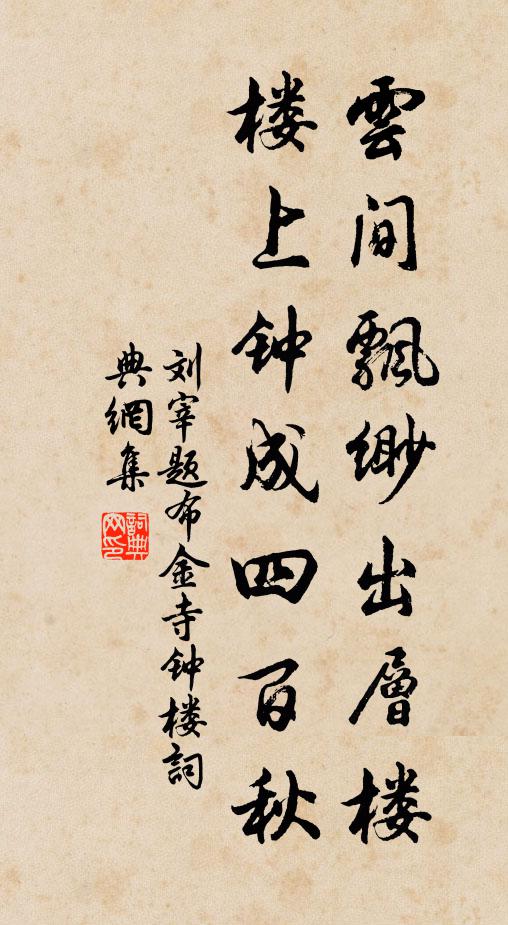 雲间飘缈出層楼
楼上钟成四百秋
刘宰题布金寺钟楼詞
典網集
詞典网印